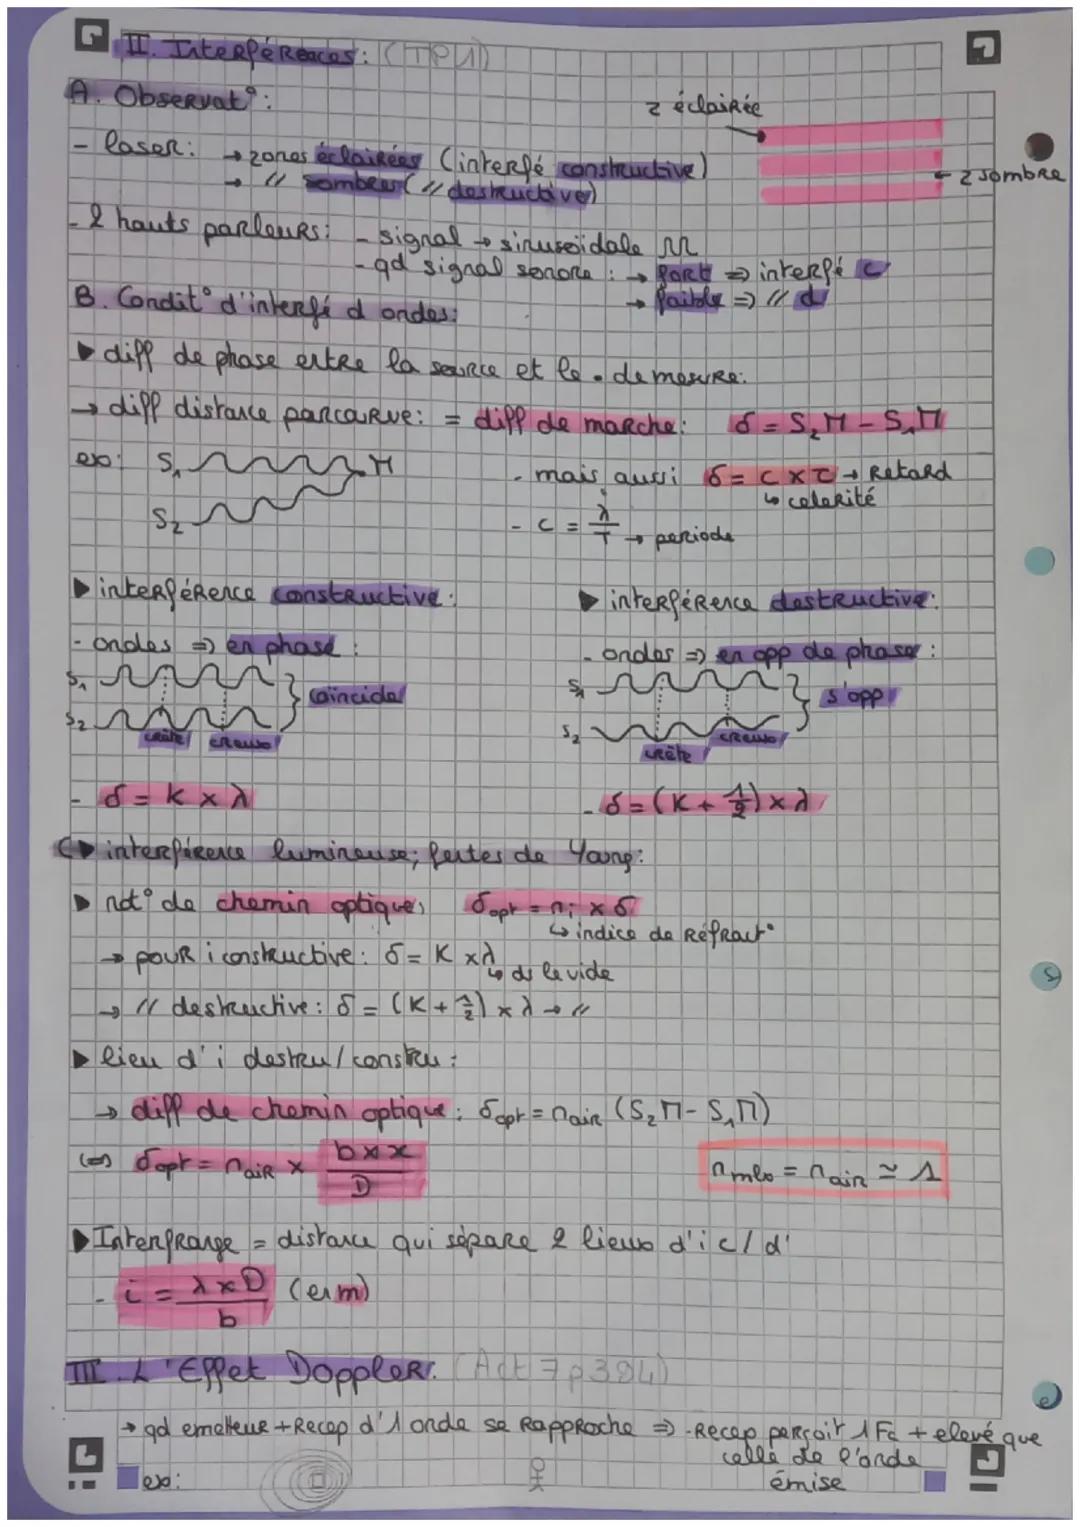 II. Interférences: (TP11)
A. Observat°:
z éclairée
- laser: → zones éclairées (interfé constructive)
→ // sombres (// destructive)
z sombre
- 2 hauts parleurs: - signal → sinusoïdale
- qd signal sonore: → fort ⇒ interfé c
→ faible ⇒ // d
B. Condit° d'interfé d ondes:
▶ diff de phase entre la source et le . de mesure:
→ diff distance parcourue: = diff de marche: δ = S₂M - S₁M
ex: S₁ M
S₂
- mais aussi δ = c × τ → Retard
↳ celerité
- c = λ/T → periode
▶ interférence constructive:
- ondes ⇒ en phase:
S₁
S₂
coïncide
crête creux
- δ = K × λ
▶ interférence destructive:
- ondes ⇒ en opp de phase:
S₁
S₂
s'opp
crête creux
- δ = (K + 1/2) × λ
C▶ interférence lumineuse; fentes de Young:
▶ not° de chemin optique, δopt = ni × δ
↳ indice de Réfract°
→ pour i constructive: δ = K × λ
↳ ds le vide
→ // destructive: δ = (K + 1/2) × λ → //
▶ lieu d'i destru/constru:
→ diff de chemin optique: δopt = nair (S₂M - S₁M)
(=) δopt = nair × b × x / D
nmlo = nair ≃ 1
▶ Interfrange = distance qui sépare 2 lieux d'i c/d'
- i = λ × D / b (en m)
III. L'Effet Doppler: (Act 7 p394)
→ qd emetteur + Recep d'1 onde se Rapproche ⇒ - Recep perçoit 1 Fé + elevé que
celle de l'onde
émise
ex: